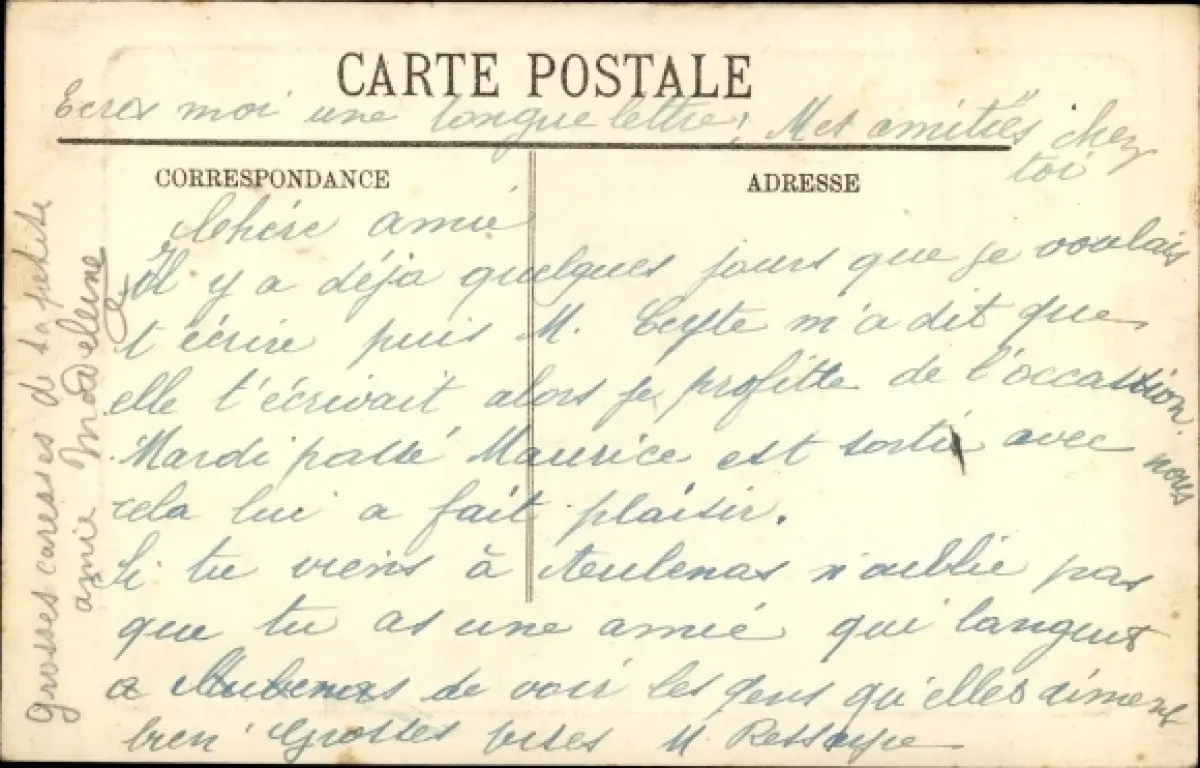 CARTE POSTALE
Ecres moi une longue lettre, Mes amitiés chez
toi
CORRESPONDANCE
ADRESSE
chère amie
Il y a déja quelques jours que je voulais
t'écrire puis M. m'a dit que
elle t'écrivait alors je profitte de l'occastion.
Mardi passé Maurice est sortie avec nous
cela lui a fait plaisir.
Si tu viens à Aubenas n'oublie pas
que tu as une amie qui languit
a Aubenas de voir les gens qu'elles aiment
bien Grosses bises M
Grosses caresses de ta petite
amie Madeleine